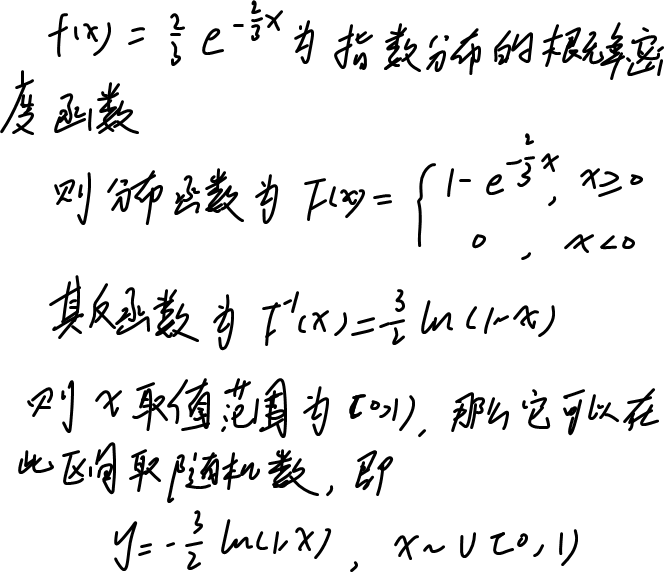 f(x) = \frac{2}{3} e^{-\frac{2}{3}x} 为指数分布的概率密
度函数
则分布函数为 F(x) = \begin{cases} 1 - e^{-\frac{2}{3}x}, & x \geq 0 \\ 0, & x < 0 \end{cases}
其反函数为 F^{-1}(x) = \frac{3}{2} ln(1-x)
则 x 取值范围为 [0,1), 那么它可以在
此区间取随机数, 即
y = -\frac{3}{2} ln(1-x), x ~ U[0,1)